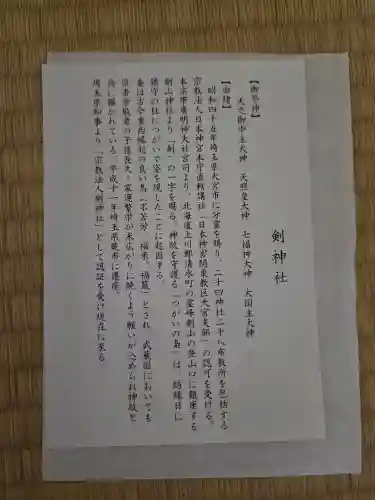 剣神社
【御祭神】
天之御中主大神　天照皇大神　七福神大神　大国主大神
【由緒】
昭和四十五年埼玉県大宮市に分霊を賜り、二十四神社二十八布教所を包括する
宗教法人日本神宮本庁直轄講社「日本神宮関東教区大宮支部」の認可を受ける。
本宗帯廣明神大社宮司より、北海道上川郡清水町の霊峰剣山の登山口に鎮座する
剣山神社より「剣」の一字を賜る。神紋を守護る「つがいの梟」は、結縁日に
鎮守の杜につがいで姿を現したことに起因する。
梟は古今東西縁起の良い鳥（不苦労、福来、福籠）とされ、武蔵国においても
信者崇敬者の子孫長久・家運繁栄が末広がりに続くよう願いが込められ神紋と
共に描かれている。平成十一年埼玉県蕨市に遷座。
埼玉県知事より「宗教法人剣神社」として認証を受け現在に至る